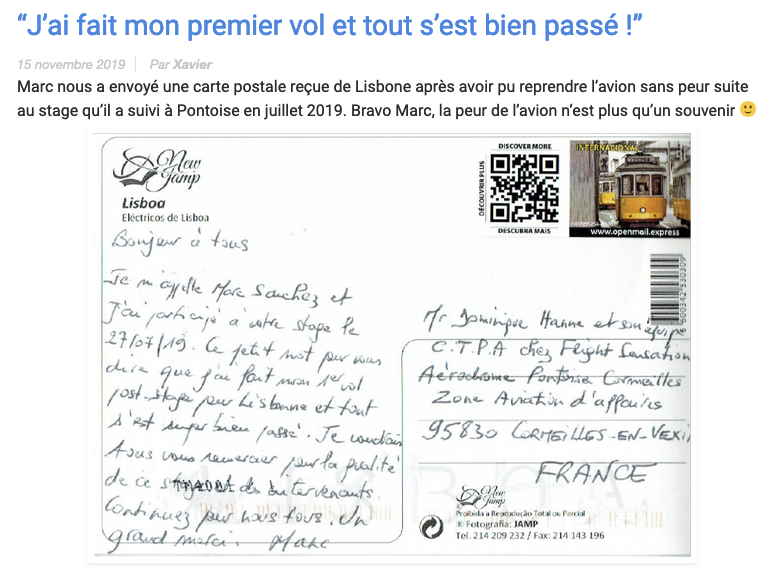 “J’ai fait mon premier vol et tout s’est bien passé !”
15 novembre 2019 Par Xavier
Marc nous a envoyé une carte postale reçue de Lisbone après avoir pu reprendre l’avion sans peur suite
au stage qu’il a suivi à Pontoise en juillet 2019. Bravo Marc, la peur de l’avion n’est plus qu’un souvenir 🙂
New
Jamp
Lisboa
Eléctricos de Lisboa
Bonjour à tous
Je m'appelle Marc Sanchez et
J'ai participé à votre stage le
27/07/19. Ce petit mot pour vous
dire que j'ai fait mon 1er vol
post-stage pour Lisbonne et tout
s'est super bien passé. Je voudrais
tous vous remercier pour la qualité
de ce stage des intervenants.
Continuez pour nous tous. Un
grand merci. Marc
DISCOVER MORE
DÉCOUVRIR PLUS
DESCUBRA MAIS
INTERNACIONAL
www.openmail.express
5600342530309
Mr Dominique Hanne et son équipe
C.T.P.A chez Flight Sensation
Aérodrome Pontoise Cormeilles
Zone Aviation d'affaires
95830 CORMEILLES-EN-VEXIN
FRANCE
New
Jamp
Proibida a Reprodução Total ou Parcial
© Fotografia: JAMP
Tel. 214 209 232 / Fax: 214 143 196